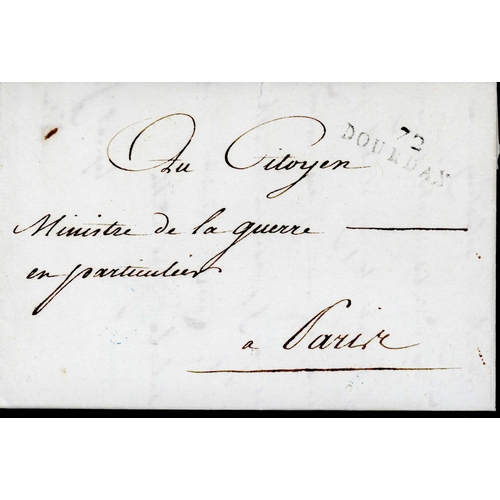 72
DOURDAN
Au Citoyen
Ministre de la guerre
en particulier
a Paris